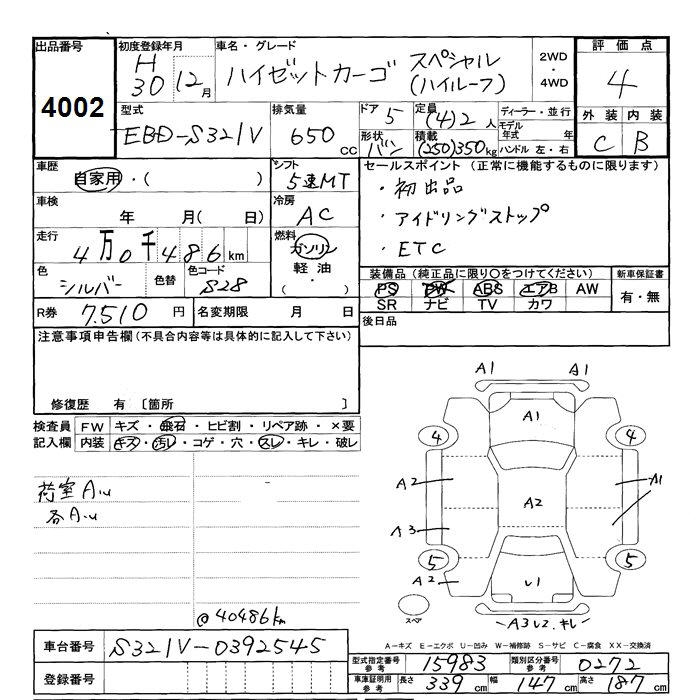 出品番号
4002
初度登録年月
H30 12月
車名・グレード
ハイゼットカーゴ スペシャル
(ハイルーフ)
2WD
・
4WD
評価点
4
外装 内装
C B
型式
EBD-S321V
排気量
650 cc
ドア 5
形状 バン
定員 (4)2 人
積載 (250)350 kg
ディーラー・並行
モデル年式 年
ハンドル 左・右
車歴
自家用・( )
シフト
5速MT
車検
年 月( 日)
冷房
AC
走行
4万0千486km
燃料
ガソリン
軽油
( ・ )
色
シルバー
色替
色コード
S28
R券 7.510 円
名変期限 月 日
セールスポイント(正常に機能するものに限ります)
・初出品
・アイドリングストップ
・ETC
装備品(純正品に限り○をつけてください)
PS PW ABS エアB AW
SR ナビ TV カワ
新車保証書
有・無
後日品
注意事項申告欄(不具合内容等は具体的に記入して下さい)
修復歴 有〔箇所 〕
検査員記入欄
FW キズ・飛石・ヒビ割・リペア跡・×要
内装 キズ・汚レ・コゲ・穴・スレ・キレ・破レ
荷室Aω
各Aω
@40486km
A1 A1
A1
4 4
A2
A2
A3
5 5
A2
U1
スペア
A3U2.キレ
A-キズ E-エクボ U-凹み W-補修跡 S-サビ C-腐食 XX-交換済
車台番号 S321V-0392545
登録番号
型式指定番号 参考 15983 類別区分番号 参考 0272
車庫証明用 参考 長さ 339 cm 幅 147 cm 高さ 187 cm